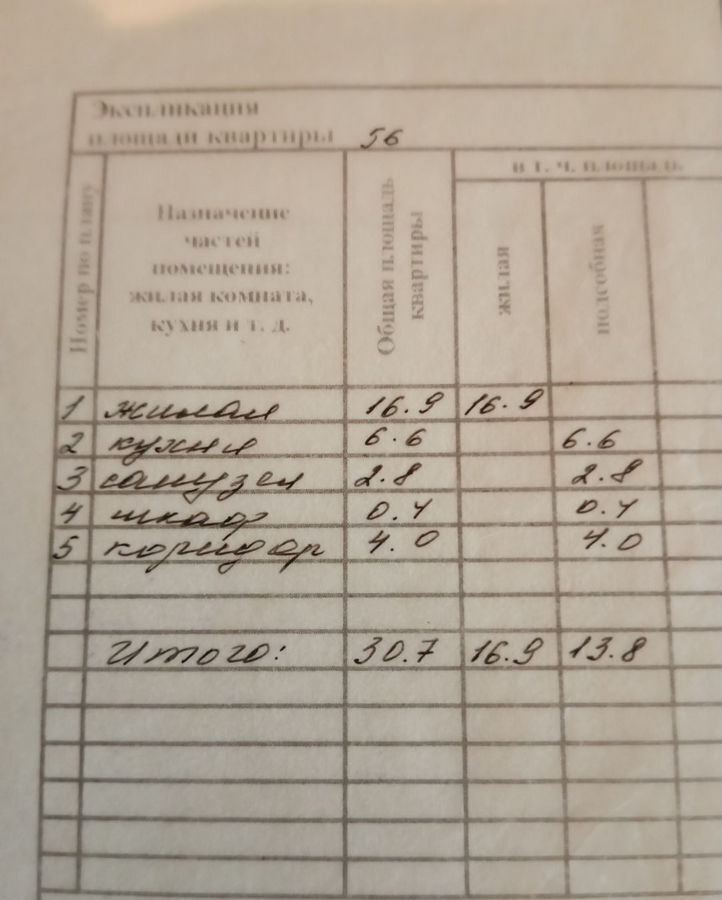 Экспликация
площади квартиры 56
Номер по плану
Назначение
частей
помещения:
жилая комната,
кухня и т. д.
Общая площадь
квартиры
в т. ч. площадь.
жилая
подсобная
1 жилая 16.9 16.9
2 кухня 6.6 6.6
3 санузел 2.8 2.8
4 шкаф 0.4 0.4
5 коридор 4.0 4.0
Итого: 30.7 16.9 13.8